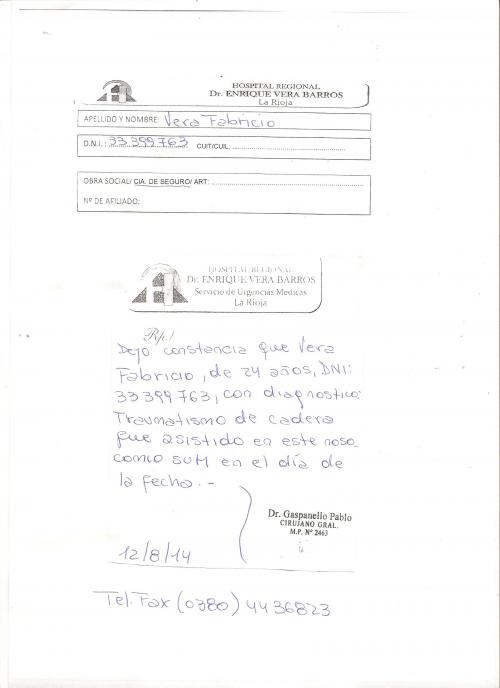 HOSPITAL REGIONAL
Dr. ENRIQUE VERA BARROS
La Rioja
APELLIDO Y NOMBRE: Vera Fabricio
D.N.I.: 33399763 CUIT/CUIL:
OBRA SOCIAL/ CIA. DE SEGURO/ ART:
Nº DE AFILIADO:
HOSPITAL REGIONAL
Dr. ENRIQUE VERA BARROS
Servicio de Urgencias Medicas
La Rioja
Rp./
Dejo constancia que Vera
Fabricio, de 24 años, DNI:
33399763, con diagnostico:
Traumatismo de cadera
fue asistido en este noso_
comio SUM en el día de
la fecha.-
Dr. Gaspanello Pablo
CIRUJANO GRAL.
M.P. Nº 2463
12/8/14
Tel. Fax (0380) 4436823